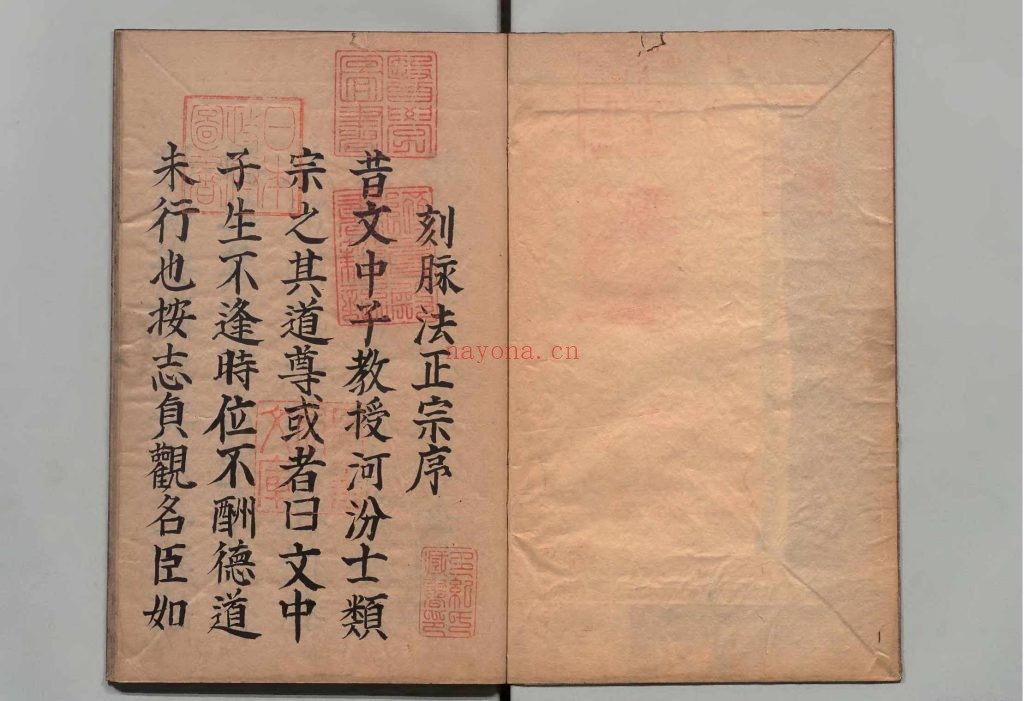 刻脉法正宗序
昔文中子教授河汾士類
宗之其道尊或者曰文中
子生不逢時位不酬德道
未行也按志貟觀名臣如
nayona.cn